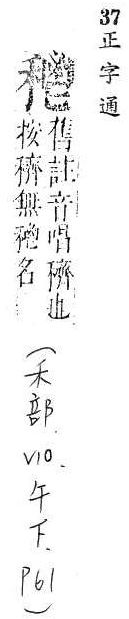 37 正字通
舊註音唱穧也
按穧無名
(禾部. V10. 午下. P61)